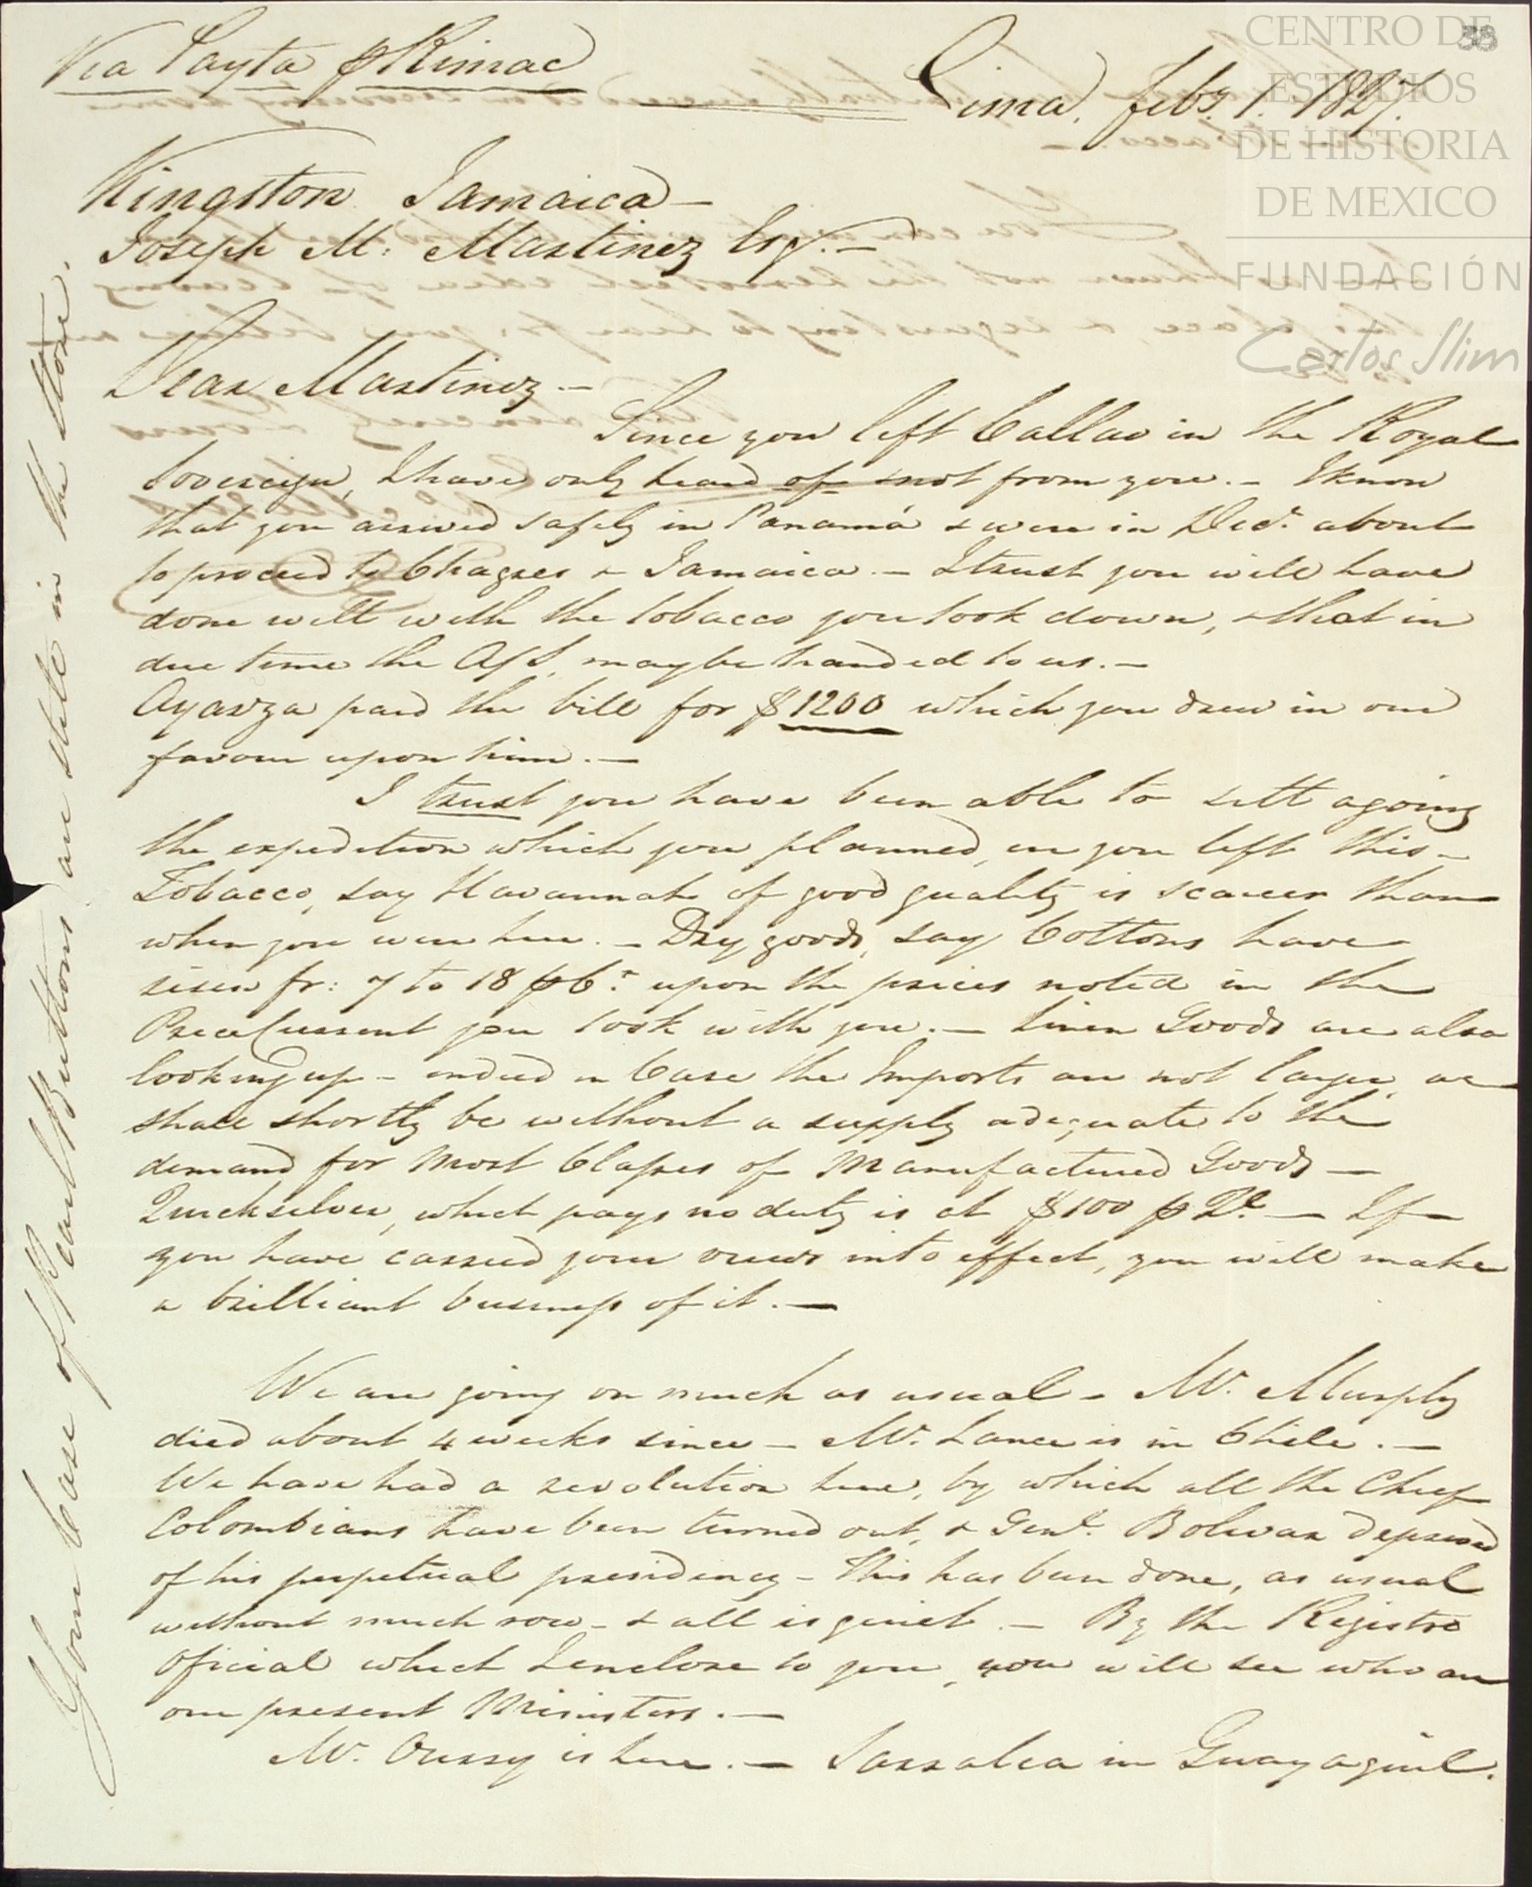 38
CENTRO DE
ESTUDIOS
DE HISTORIA
DE MEXICO
FUNDACIÓN
Carlos Slim
Via Payta p Rimac
Lima, feby. 1. 1827.
Kingston Jamaica —
Joseph M. Martinez Esq. —
Dear Martinez. —
Since you left Callao in the Royal
Sovereign, I have only heard of & not from you. — I know
that you arrived safely in Panamá & were in Decr. about
to proceed to Chagres & Jamaica. — I trust you will have
done well with the tobacco you took down, & that in
due time the A/S, may be handed to us. —
Ayarza paid the bill for $1200 which you drew in our
favour upon him. —
I trust you have been able to sett agoing
the expedition which you planned, on you left this —
Tobacco, say Havannah of good quality is scarcer than
when you were here. — Dry goods, say Cottons have
risen fr: 7 to 18 p Ct. upon the prices noted in the
Price Current you took with you. — Linen Goods are also
looking up — indeed in Case the Imports are not large, we
shall shortly be without a supply adequate to the
demand for most Classes of Manufactured Goods —
Quicksilver, which pays no duty is at $100 p Ql. — If
you have carried your views into effect, you will make
a brilliant business of it. —
We are going on much as usual — Mr. Murphy
died about 4 weeks since — Mr. Lance is in Chile. —
We have had a revolution here, by which all the Chief
Colombians have been turned out, & Genl. Bolivar deprived
of his perpetual presidency — This has been done, as usual
without much row — & all is quiet. — By the Registro
Oficial which I enclose to you, you will see who are
our present Ministers. —
Mr. is here. — Larralea in Guayaquil.
Your Case of Pearl Buttons are still in the Store.